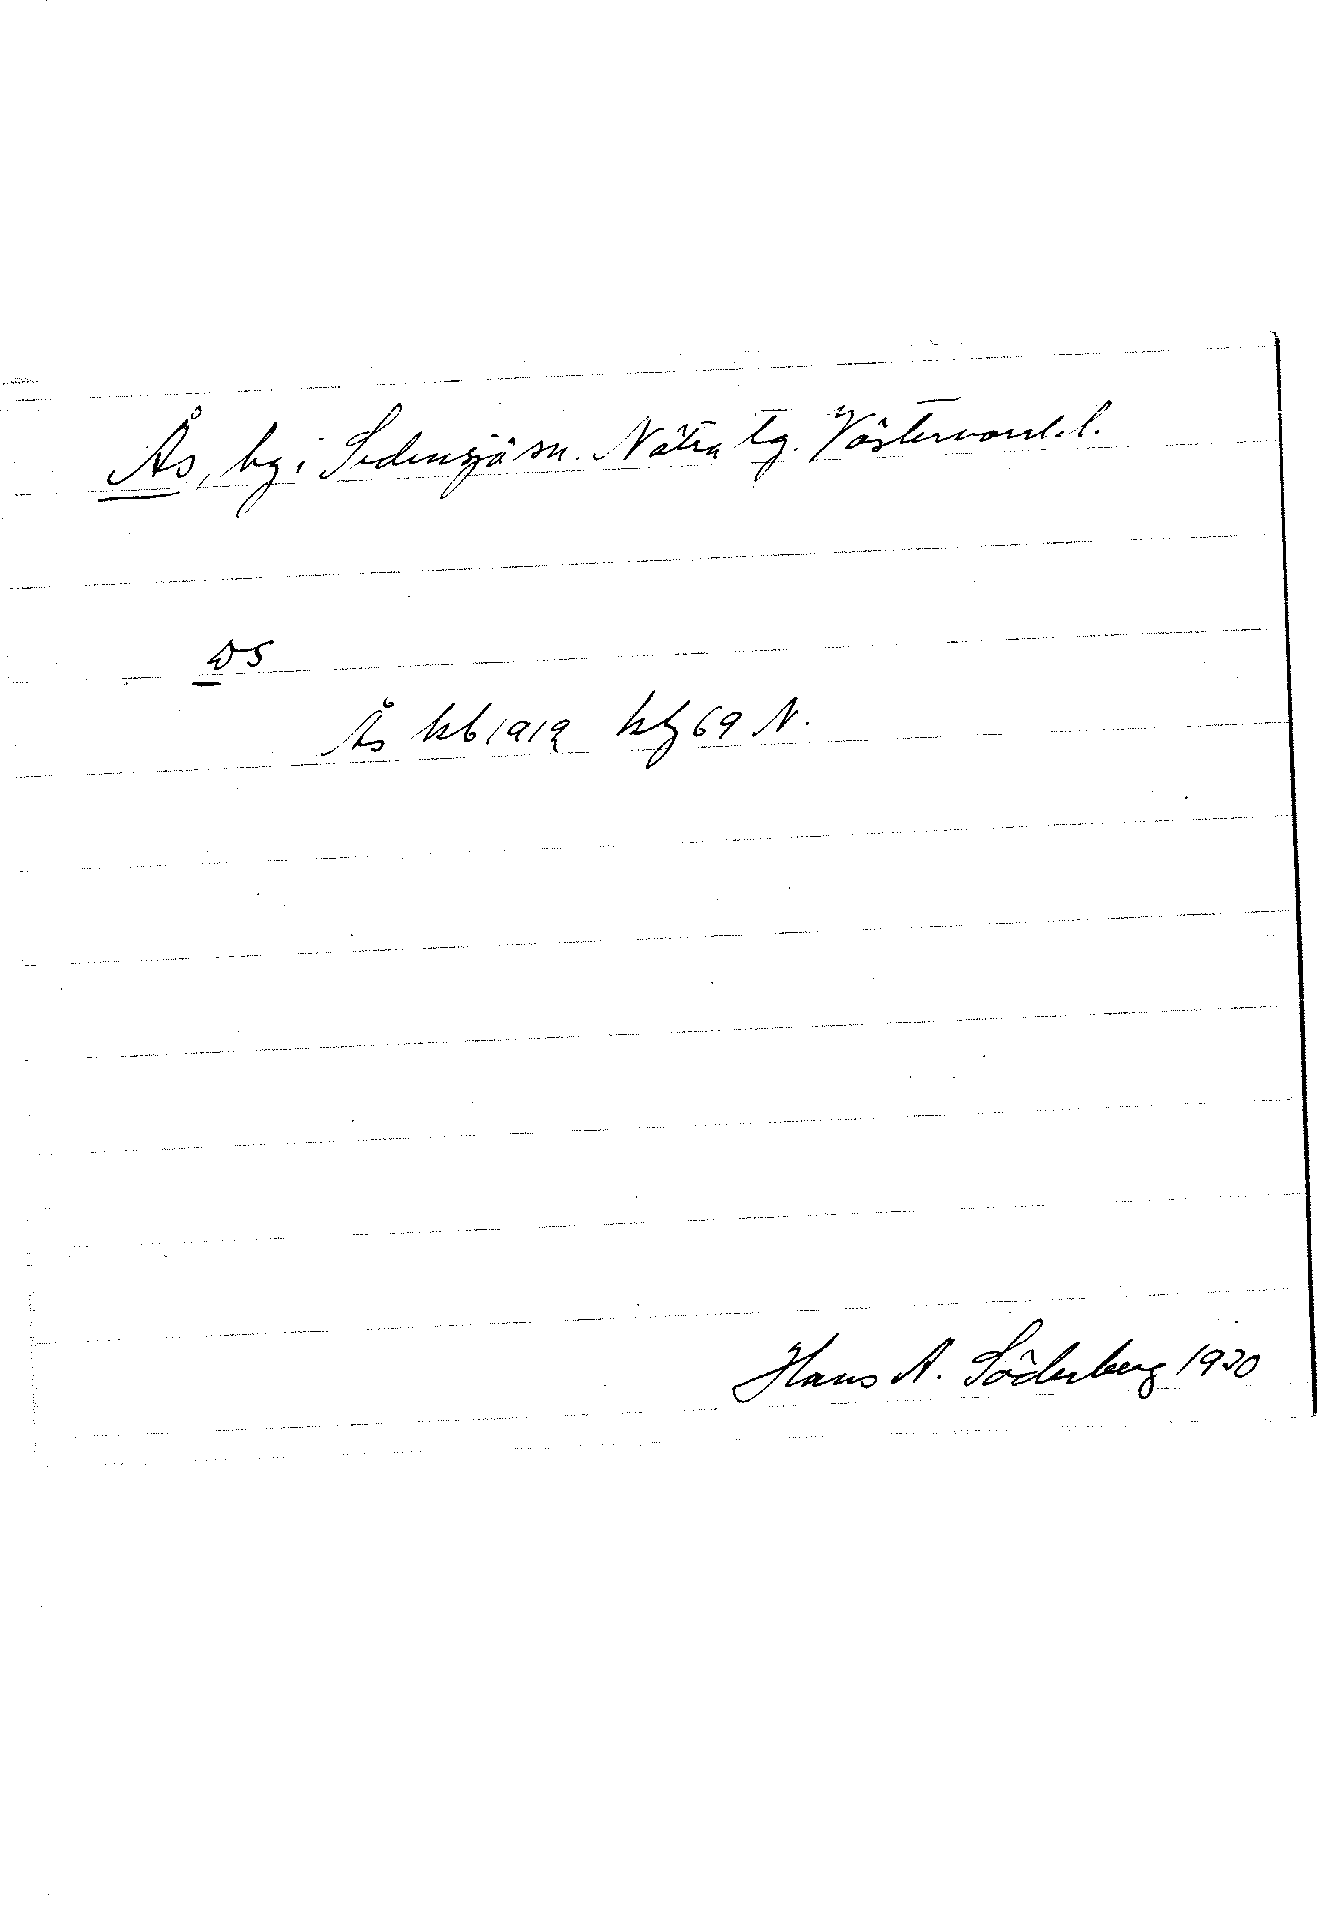 Ås, by i Sidensjö sn. Nätra tg. Västernorrl. l.
Ås kb 1919 kbg 69 N.
Hans A. Söderberg 1920